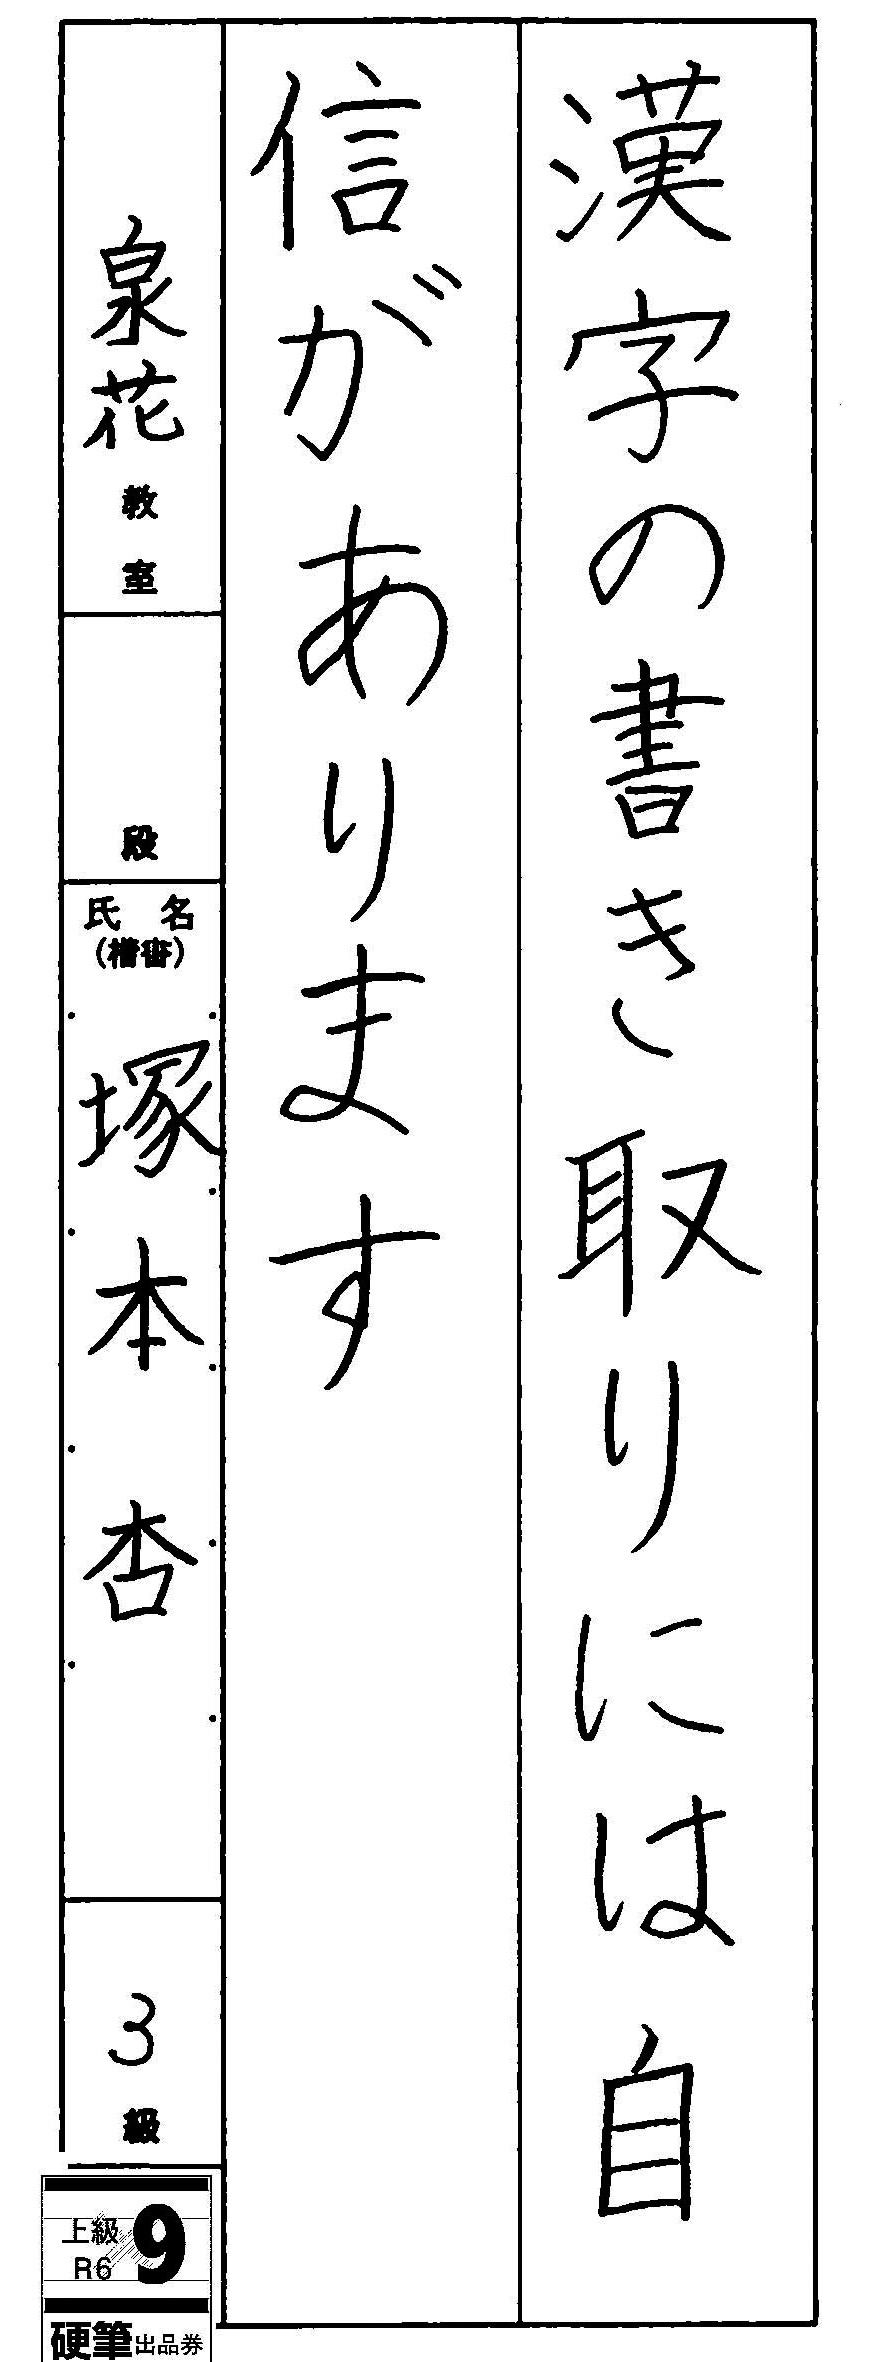 漢字の書き取りには自
信があります
泉花教室
段
氏名
(楷書)
塚本杏
3級
上級
R6
9
硬筆出品券